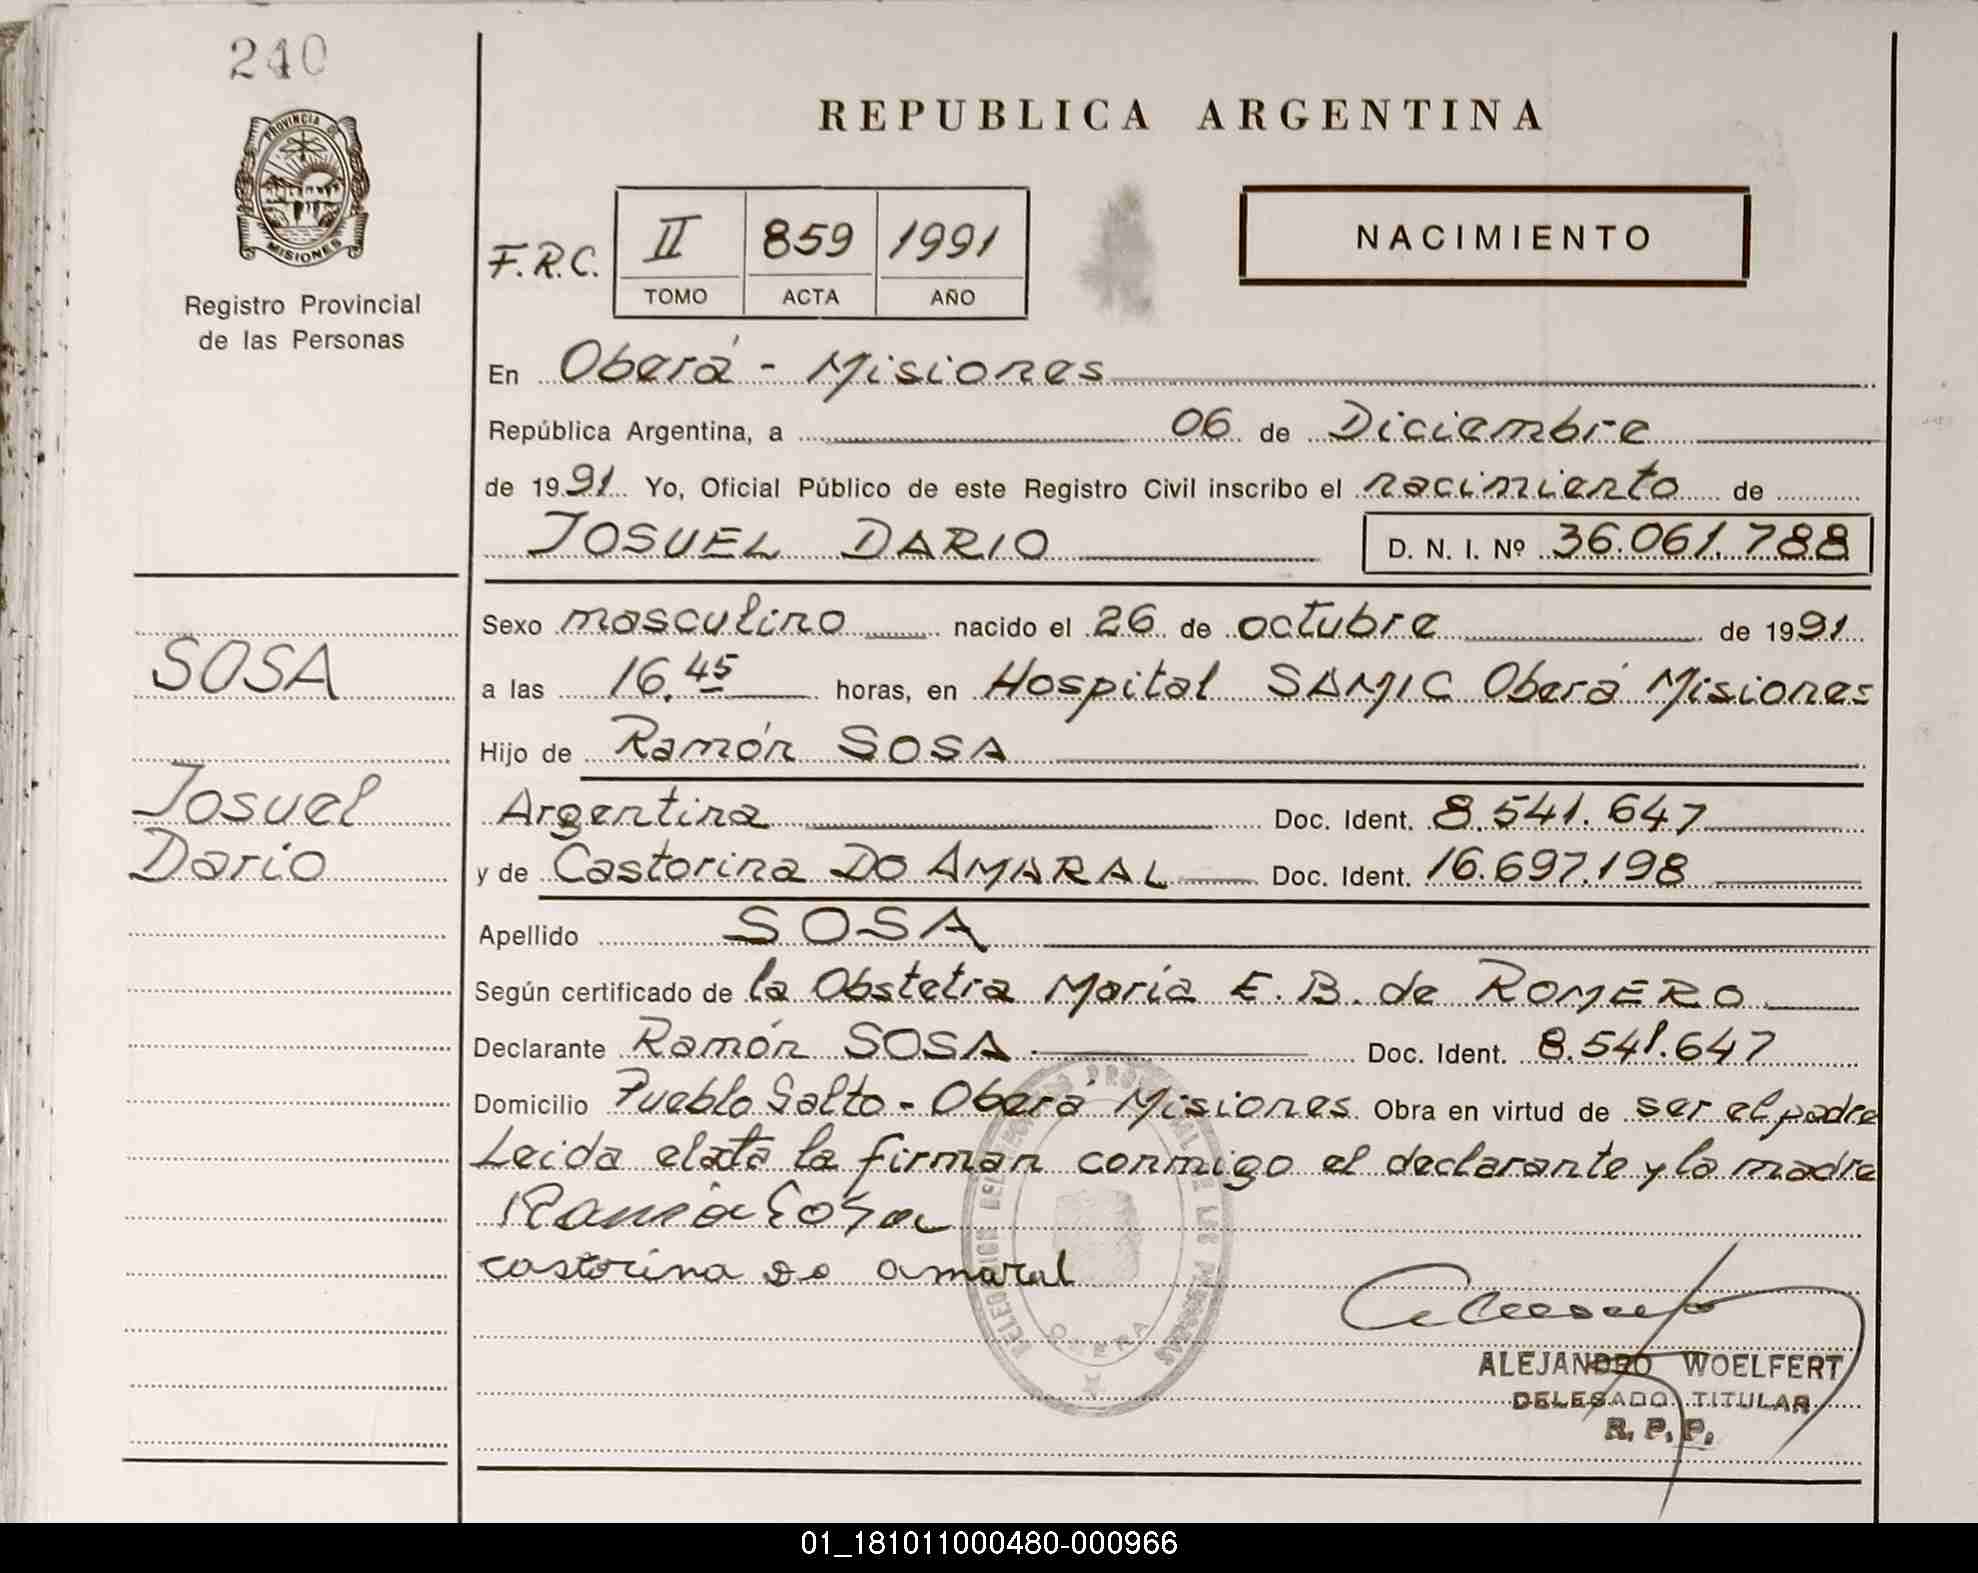 240
PROVINCIA DE
MISIONES
Registro Provincial
de las Personas
REPUBLICA ARGENTINA
F.R.C. II 859 1991
TOMO ACTA AÑO
NACIMIENTO
En Oberá - Misiones
República Argentina, a 06 de Diciembre
de 1991 Yo, Oficial Público de este Registro Civil inscribo el nacimiento de
JOSUEL DARIO D. N. I. Nº 36.061.788
SOSA
Josuel
Dario
Sexo masculino nacido el 26 de octubre de 1991
a las 16,45 horas, en Hospital SAMIC Oberá Misiones
Hijo de Ramón SOSA
Argentina Doc. Ident. 8.541.647
y de Castorina DO AMARAL Doc. Ident. 16.697.198
Apellido SOSA
Según certificado de la Obstetra María E. B. de ROMERO
Declarante Ramón SOSA Doc. Ident. 8.541.647
Domicilio Pueblo Salto - Oberá Misiones Obra en virtud de ser el padre
Leida el acta la firman conmigo el declarante y la madre
Ramón Sosa
castorina do amaral
OBERA
ALEJANDRO WOELFERT
DELEGADO TITULAR
R. P. P.
01_181011000480-000966